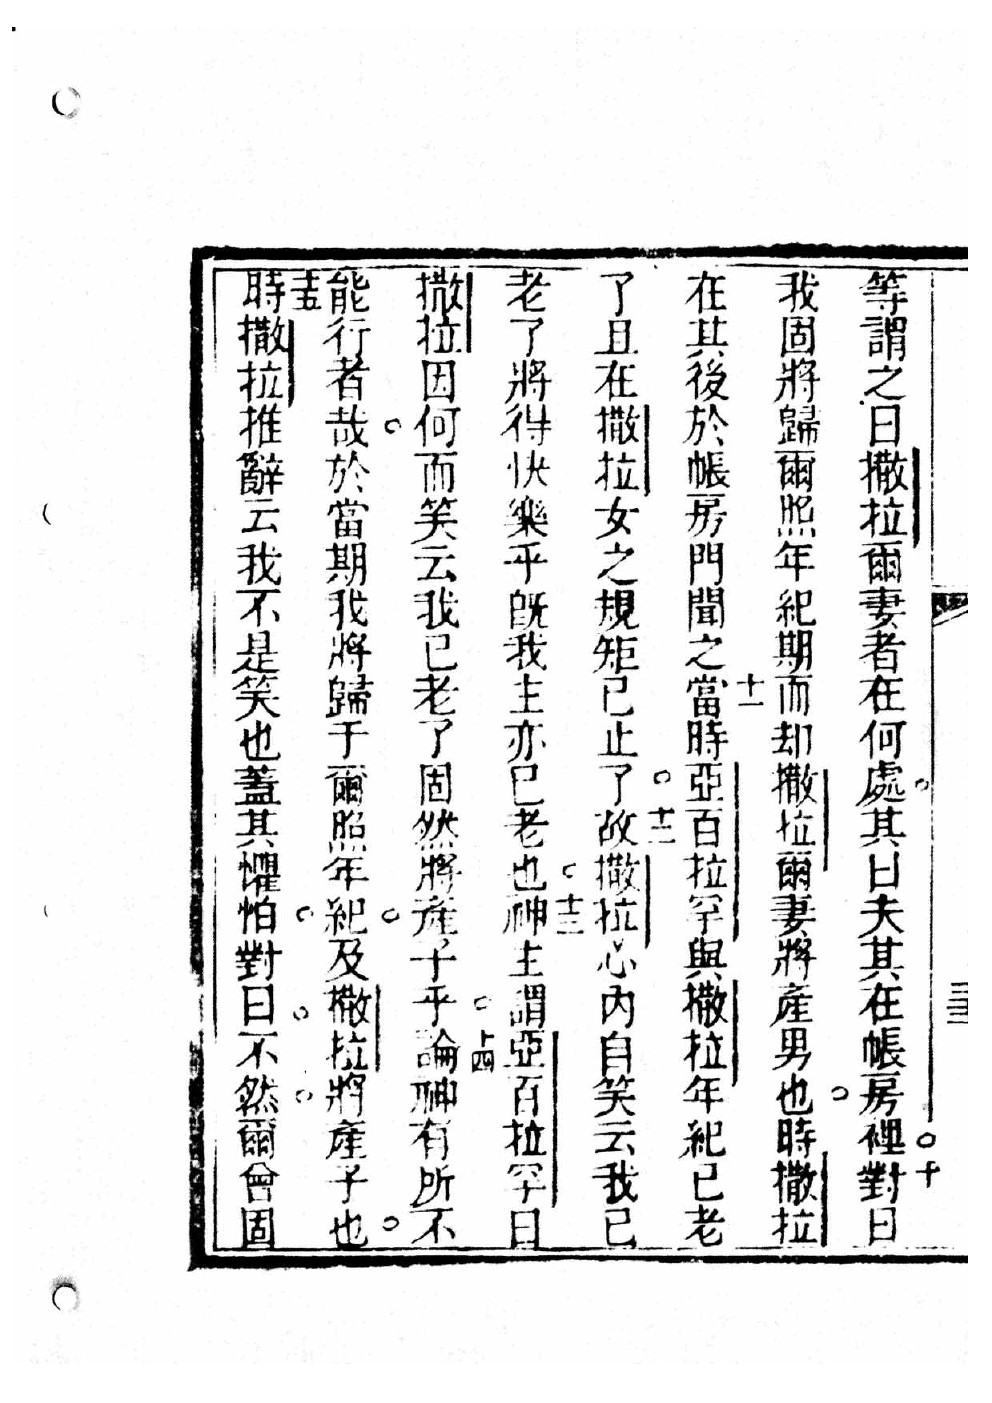 等謂之曰撒拉爾妻者在何處。其曰夫其在帳房裡。十對曰
我固將歸爾照年紀期而却撒拉爾妻將產男也。時撒拉
在其後於帳房門聞之十一當時亞百拉罕與撒拉年紀已老
了且在撒拉女之規矩已止了。十二故撒拉心內自笑云我已
老了將得快樂乎旣我主亦已老也。十三神主謂亞百拉罕曰
撒拉因何而笑云我已老了固然將產子乎。十四論神有所不
能行者哉。於當期我將歸于爾照年紀。及撒拉將產子也。
十五時撒拉推辭云我不是笑也蓋其懼怕。對曰。不然。爾曾固
三三